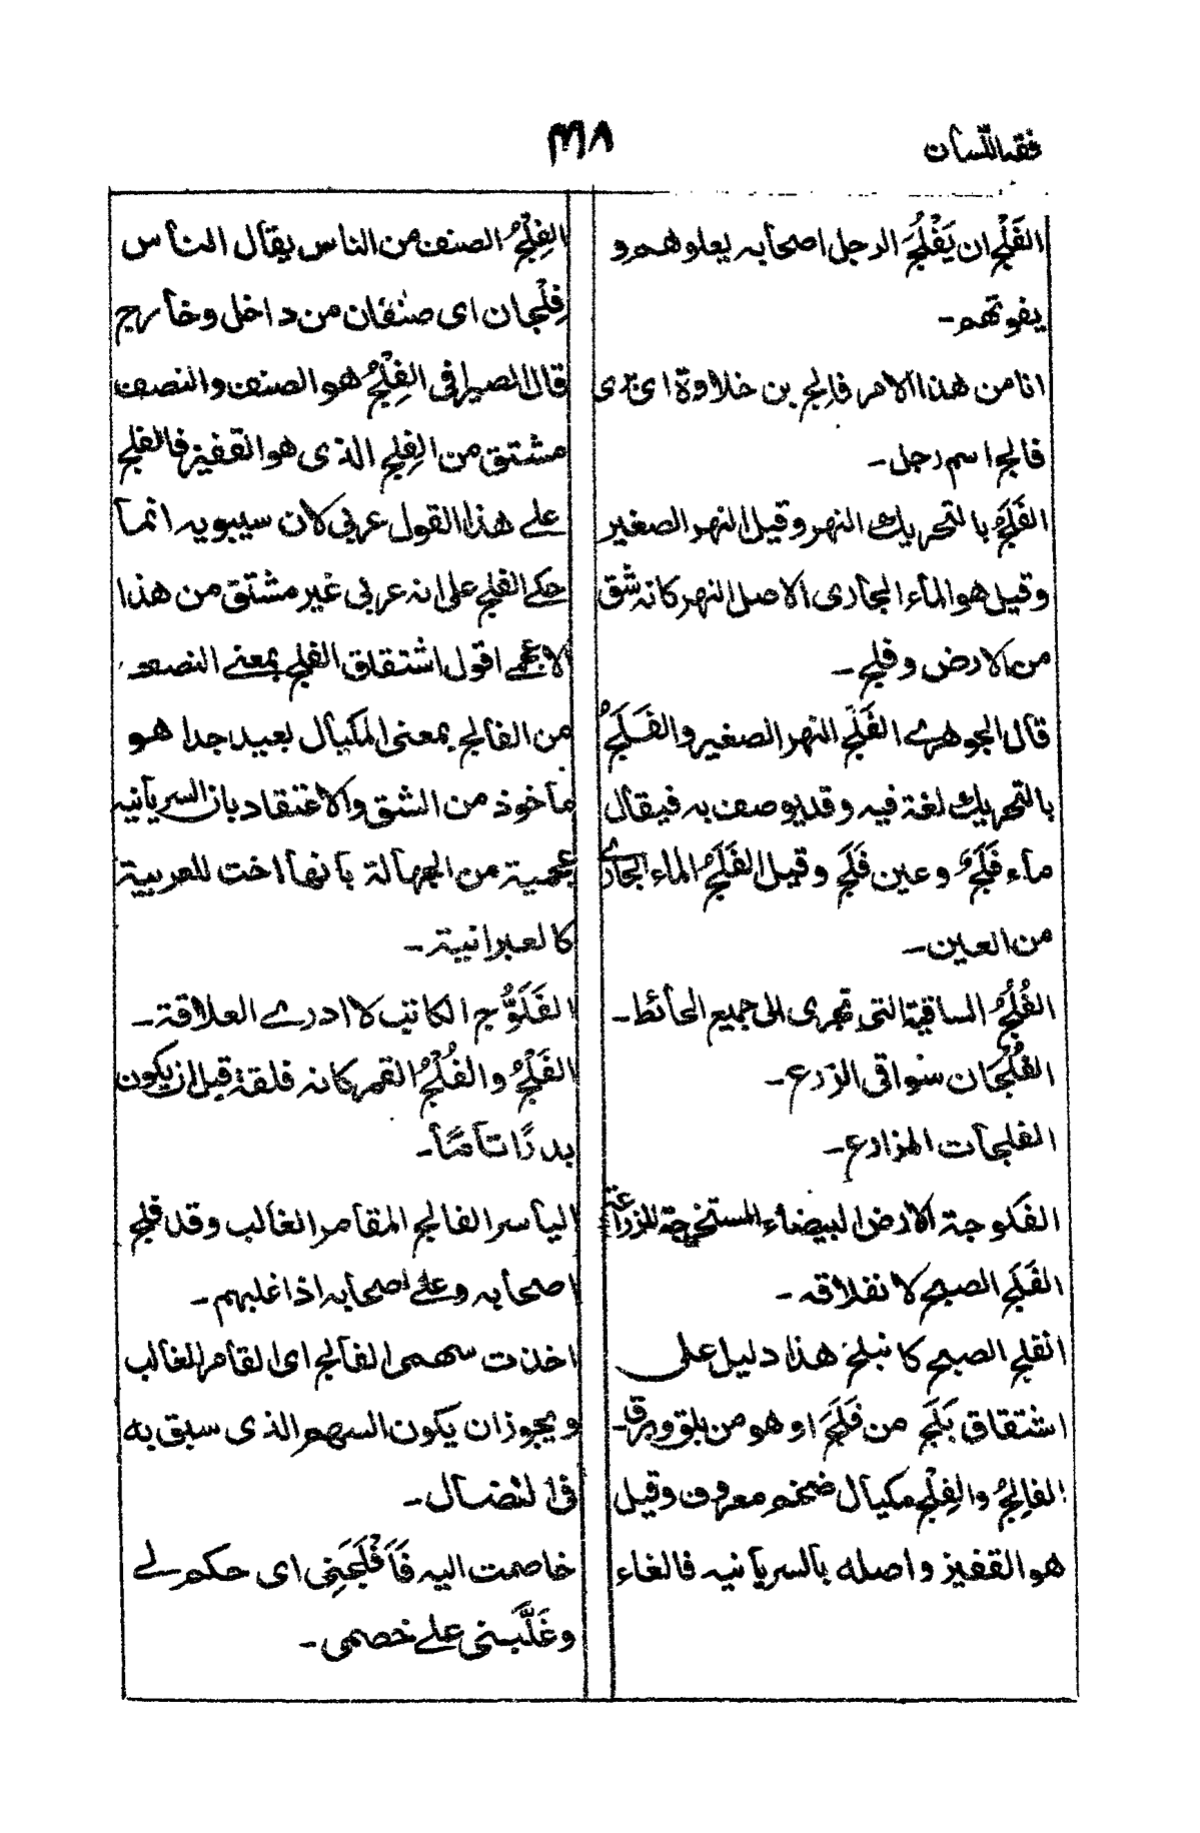 فقه اللسان
٣٣٨
الفَلْج ان يَفْلُجَ الرجل اصحابه يعلوهم و
يفوتهم۔
انا من هذا الامر فالج بن خلاوة ای بری
فالج اسم رجل۔
الفَلَجُ بالتحریك النهر وقیل النهر الصغیر
وقیل هو الماء الجاری الاصل النهر کانه شق
من الارض وفلج۔
قال الجوهرے الفَلَج النهر الصغیر والفَلَجُ
بالتحریك لغة فیه وقد یوصف به فیقال
ماء فَلَجٌ وعین فَلَج وقیل الفَلَجُ الماء الجارے
من العین۔
الفُلُجُ الساقیة التی تجری الی جمیع الحائط۔
الفُلْجَان سواقی الزرع۔
الفلجات المزارع۔
الفلوجة الارض البیضاء المستخرجة للزراعة
الفَلَج الصبح لانفلاقه۔
انفلج الصبح کانبلج هذا دلیل علی
اشتقاق بَلَج من فَلَجَ او هو من بلق وبرق۔
الفالِجُ والفِلْج مکیال ضخم معروف وقیل
هو القفیز واصله بالسریانیه فالغاء
الفِلْجُ الصنف من الناس یقال الناس
فِلْجان ای صنفان من داخل وخارج
قال الصیرافی الفِلْجُ هو الصنف والنصف
مشتق من الفِلج الذی هو القفیز فالفلج
علے هذا القول عربی کان سیبویه انما
حکے الفلج علی انه عربی غیر مشتق من هذا
الاعجمے اقول اشتقاق الفلج بمعنے النصف
من الفالج بمعنی المکیال بعید جدا هو
ماخوذ من الشق والاعتقاد بان السریانیه
عجمیة من الجهالة بانها اخت للعربیة
کالعبرانیة۔
الفَلُّوج الکاتب لا ادرے العلاقة۔
الفَلْجُ والفُلْجُ القمر کانه فلقة قبل ان یکون
بدرًا تامًّا۔
الیاسر الفالج المقامر الغالب وقد فلج
اصحابه وعلے اصحابه اذا غلبهم۔
اخذت سهمی الفالج ای القامر الغالب
ویجوز ان یکون السهم الذی سبق به
فی النضال۔
خاصمت الیه فَاَفْلَجَنِی ای حکم لے
وغَلَّبنی علے خصمی۔